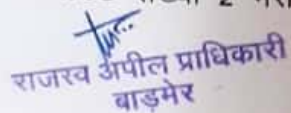 2
राजस्व अपील प्राधिकारी
बाड़मेर